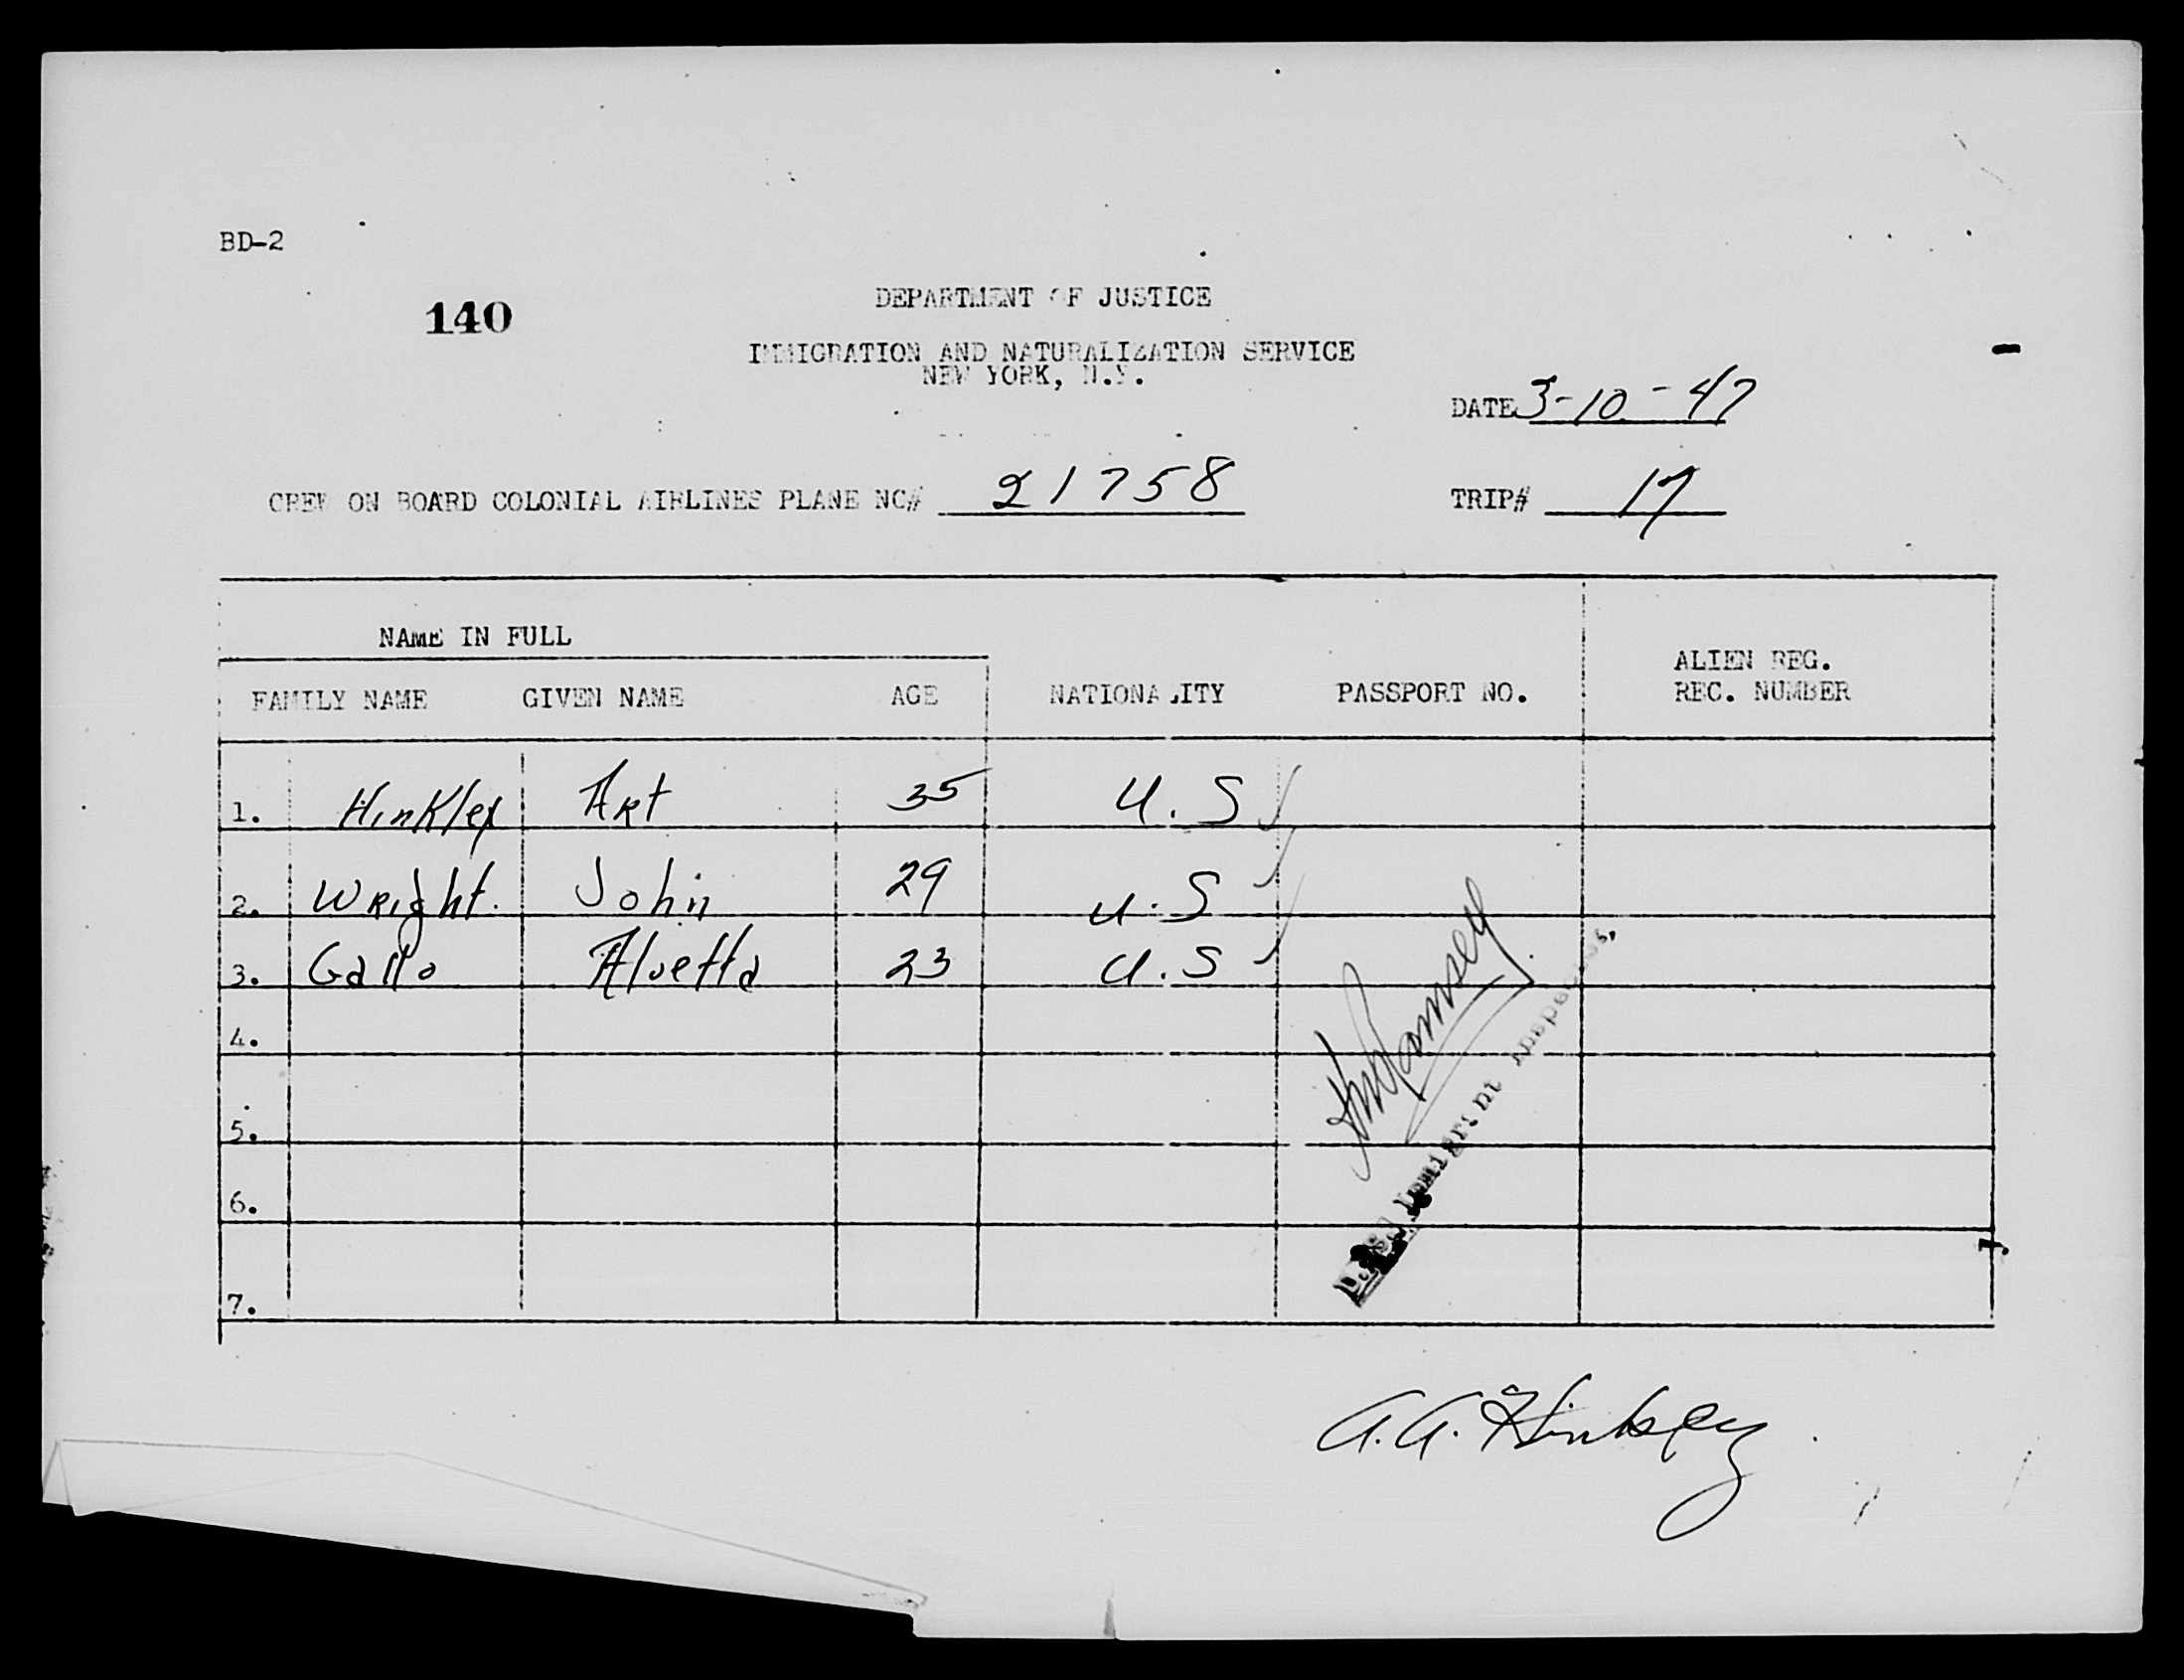 BD-2
140
DEPARTMENT OF JUSTICE
IMMIGRATION AND NATURALIZATION SERVICE
NEW YORK, N.Y.
DATE 3-10-47
CREW ON BOARD COLONIAL AIRLINES PLANE NC# 21758 TRIP# 17
NAME IN FULL
FAMILY NAME GIVEN NAME AGE NATIONALITY PASSPORT NO. ALIEN REG. REC. NUMBER
1. Hinkley Art 35 U.S
2. Wright. John 29 U.S
3. Gallo Alvetta 23 U.S
4.
5.
6.
7.
Ramsey
U.S. Immigrant Inspector.
A.A. Hinkley